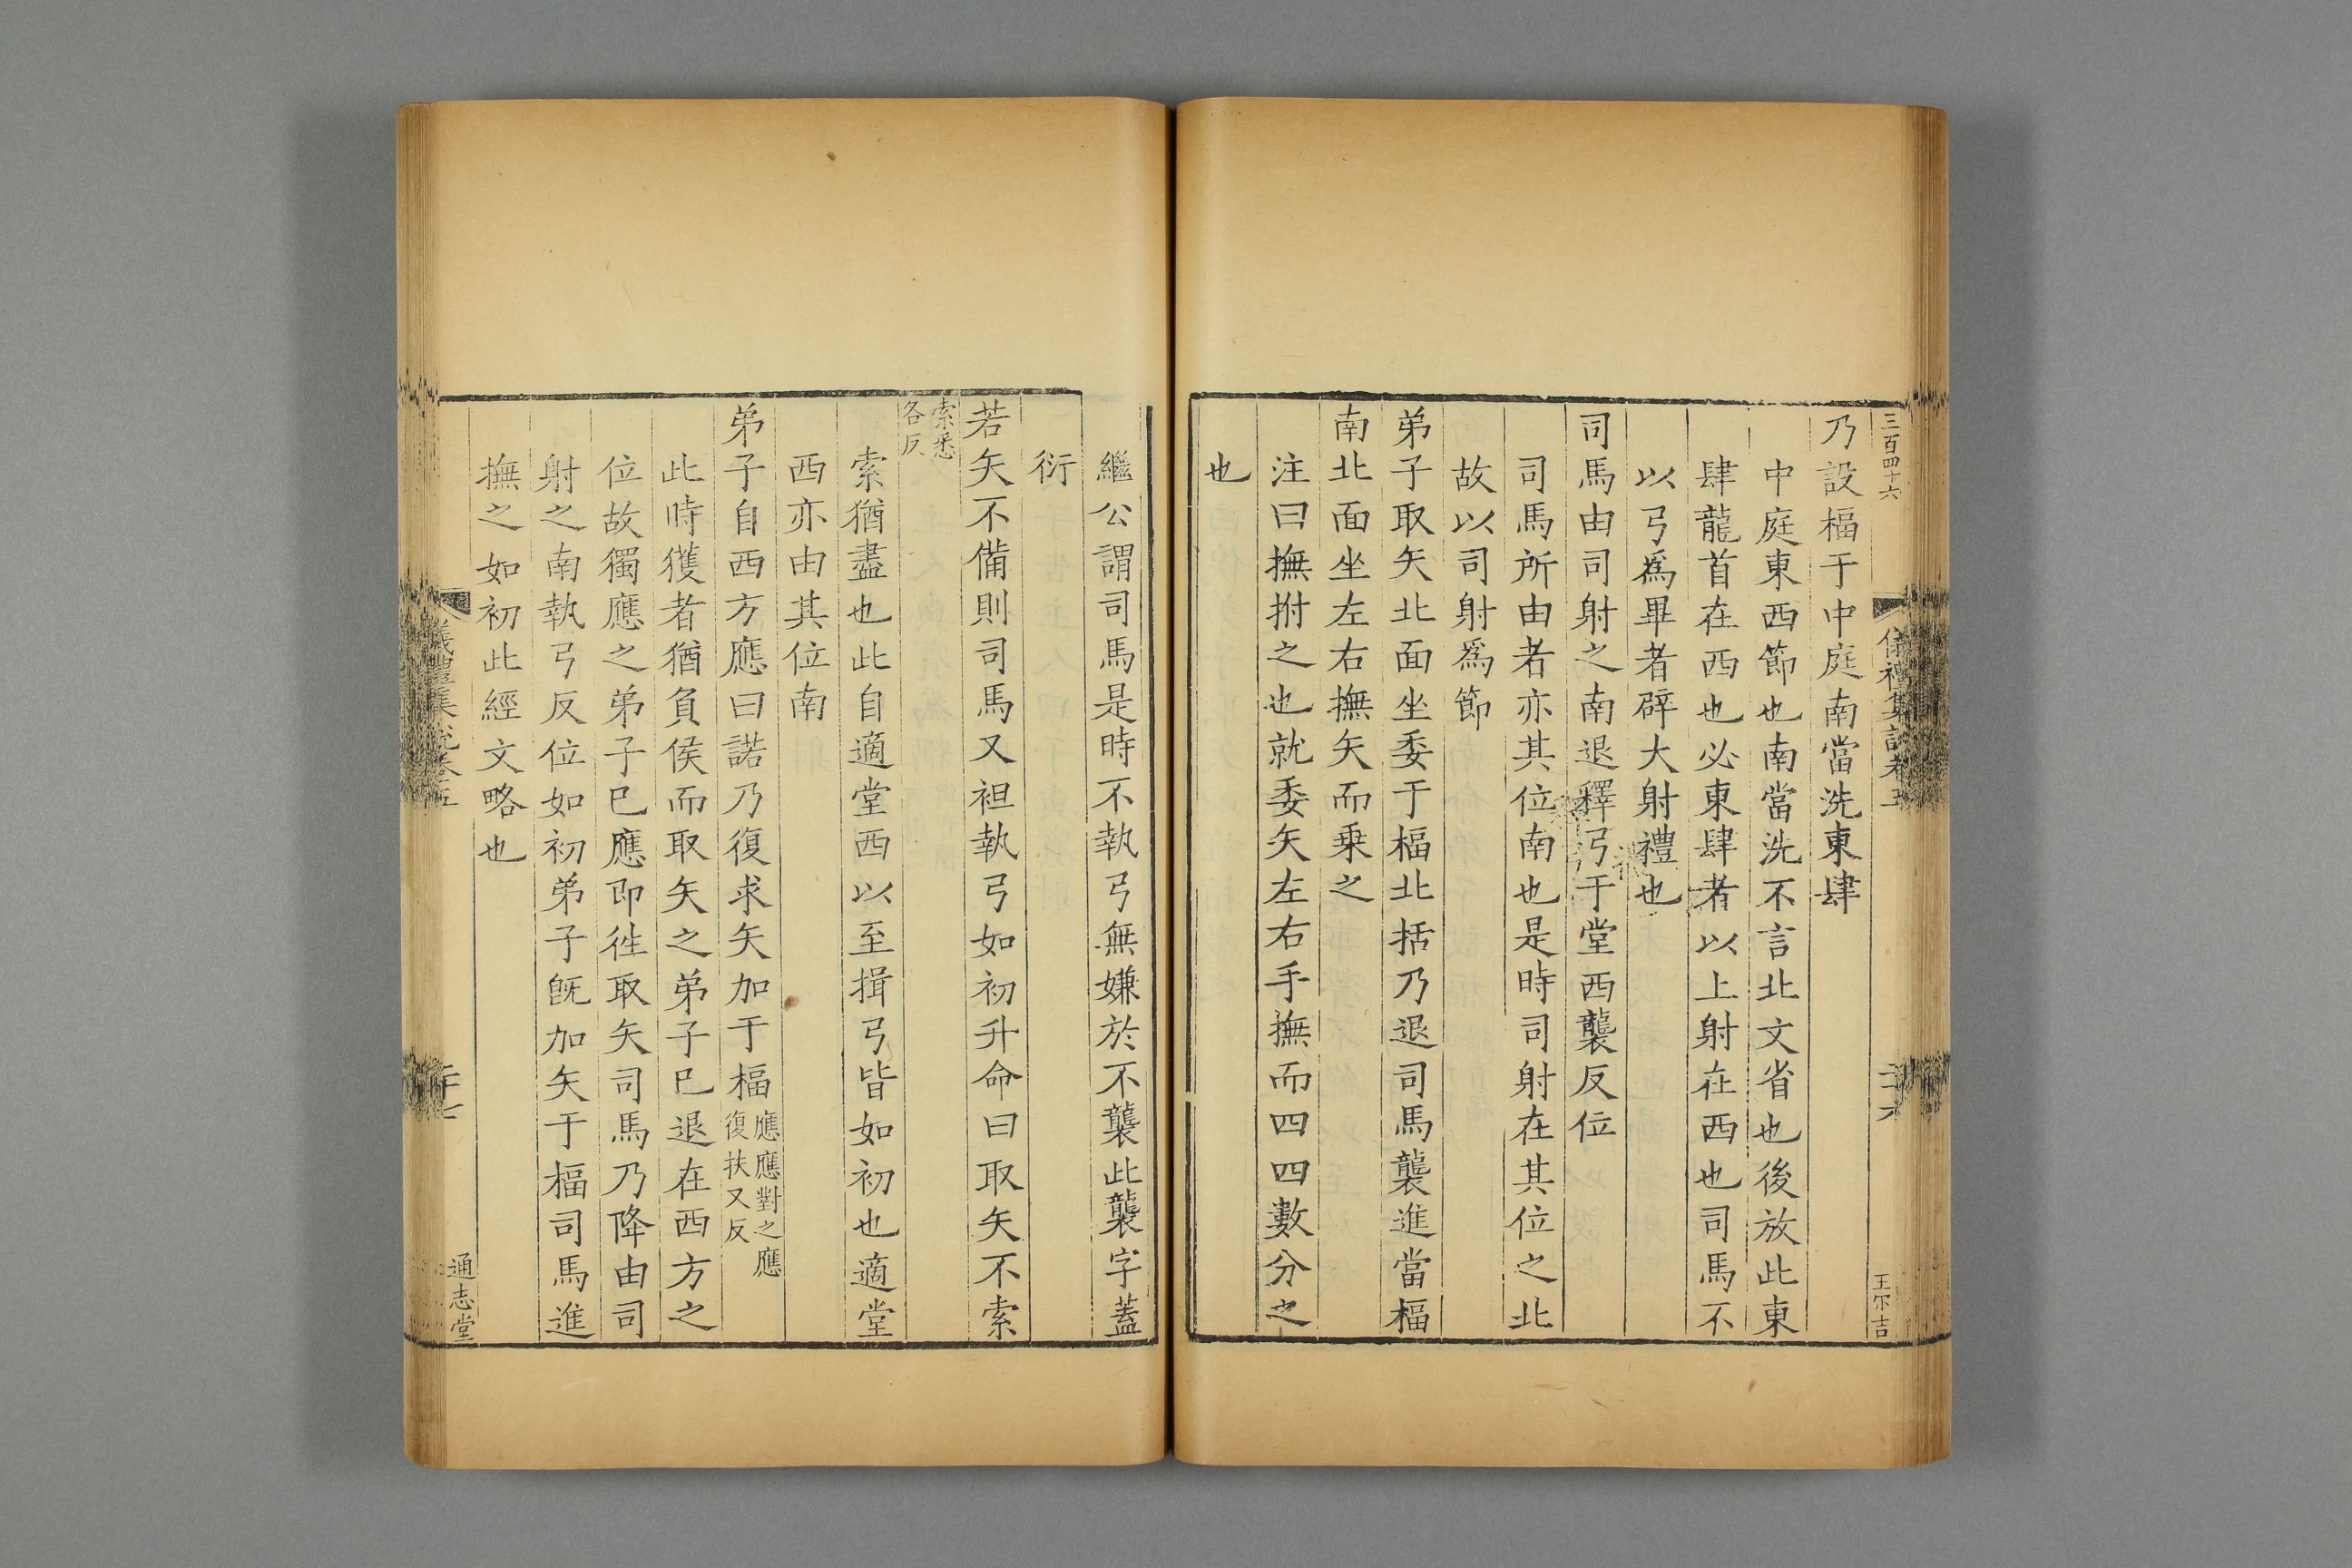 三百四十六
儀禮集說卷五
二十六
王尔吉
乃設楅于中庭南當洗東肆
中庭東西節也南當洗不言北文省也後放此東
肆龍首在西也必東肆者以上射在西也司馬不
以弓爲畢者辟大射禮也
司馬由司射之南退釋弓于堂西襲反位
司馬所由者亦其位南也是時司射在其位之北
故以司射爲節
弟子取矢北面坐委于楅北括乃退司馬襲進當楅
南北面坐左右撫矢而乗之
注曰撫拊之也就委矢左右手撫而四四數分之
也
繼公謂司馬是時不執弓無嫌於不襲此襲字蓋
衍
若矢不備則司馬又袒執弓如初升命曰取矢不索
索悉
各反
索猶盡也此自適堂西以至揖弓皆如初也適堂
西亦由其位南
弟子自西方應曰諾乃復求矢加于楅應應對之應
復扶又反
此時獲者猶負侯而取矢之弟子巳退在西方之
位故獨應之弟子巳應即徃取矢司馬乃降由司
射之南執弓反位如初弟子旣加矢于楅司馬進
撫之如初此經文略也
儀禮集說卷五
二十七
通志堂